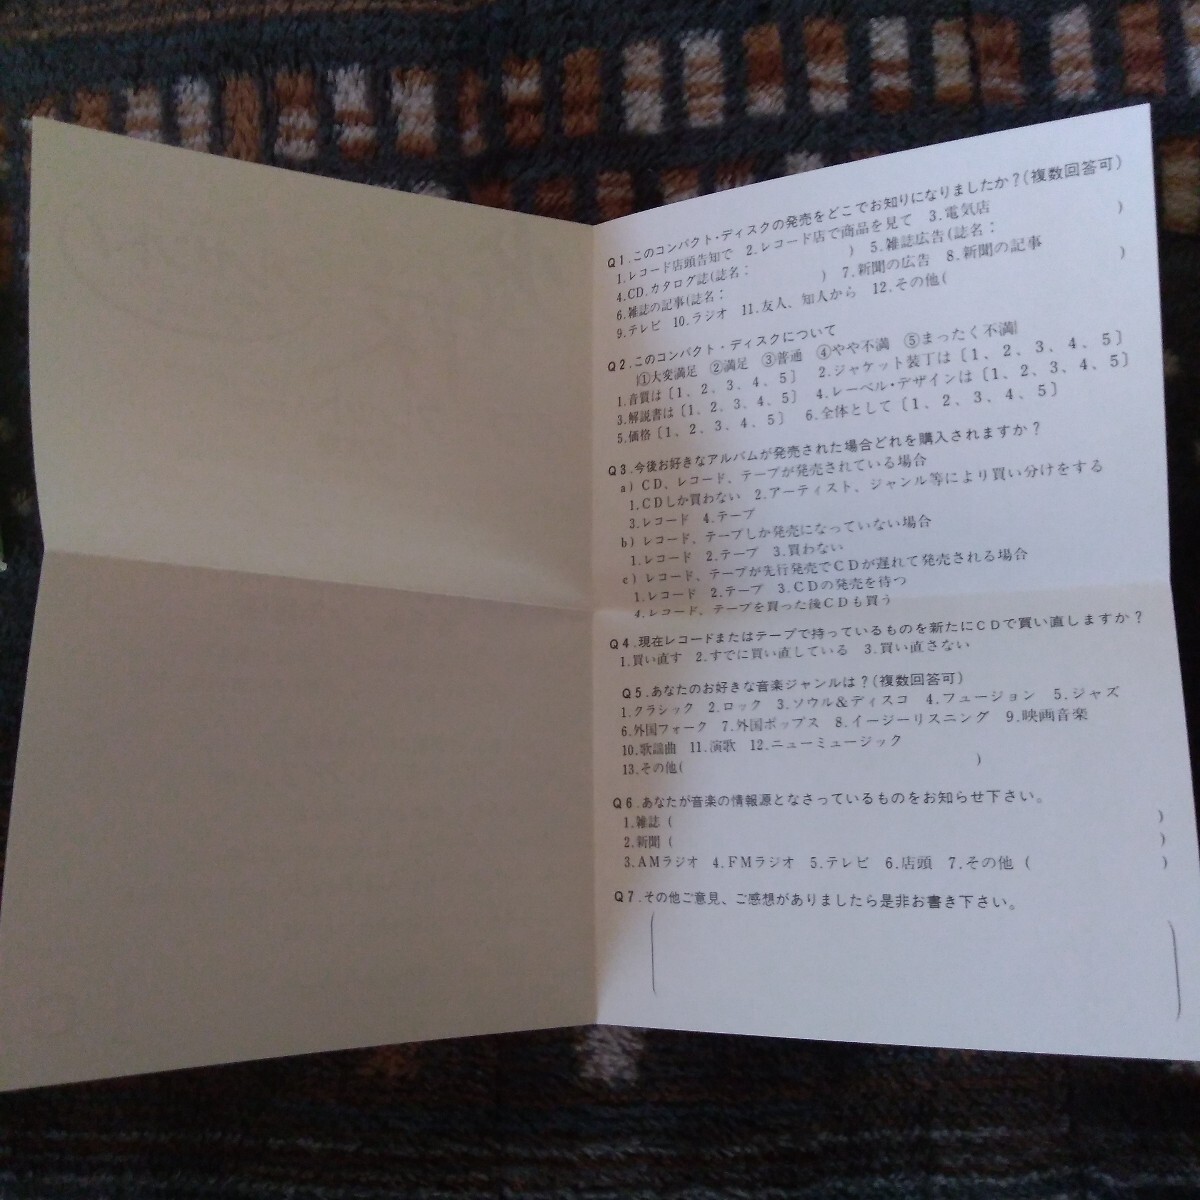 Q1.このコンパクト・ディスクの発売をどこでお知りになりましたか?(複数回答可)
1.レコード店頭告知で 2.レコード店で商品を見て 3.電気店
4.CD.カタログ誌(誌名: ) 5.雑誌広告(誌名: )
6.雑誌の記事(誌名: ) 7.新聞の広告 8.新聞の記事
9.テレビ 10.ラジオ 11.友人、知人から 12.その他( )
Q2.このコンパクト・ディスクについて
①大変満足 ②満足 ③普通 ④やや不満 ⑤まったく不満
1.音質は〔1、2、3、4、5〕 2.ジャケット装丁は〔1、2、3、4、5〕
3.解説書は〔1、2、3、4、5〕 4.レーベル・デザインは〔1、2、3、4、5〕
5.価格〔1、2、3、4、5〕 6.全体として〔1、2、3、4、5〕
Q3.今後お好きなアルバムが発売された場合どれを購入されますか?
a) CD、レコード、テープが発売されている場合
1.CDしか買わない 2.アーティスト、ジャンル等により買い分けをする
3.レコード 4.テープ
b) レコード、テープしか発売になっていない場合
1.レコード 2.テープ 3.買わない
c) レコード、テープが先行発売でCDが遅れて発売される場合
1.レコード 2.テープ 3.CDの発売を待つ
4.レコード、テープを買った後CDも買う
Q4.現在レコードまたはテープで持っているものを新たにCDで買い直しますか?
1.買い直す 2.すでに買い直している 3.買い直さない
Q5.あなたのお好きな音楽ジャンルは?(複数回答可)
1.クラシック 2.ロック 3.ソウル&ディスコ 4.フュージョン 5.ジャズ
6.外国フォーク 7.外国ポップス 8.イージーリスニング 9.映画音楽
10.歌謡曲 11.演歌 12.ニューミュージック
13.その他( )
Q6.あなたが音楽の情報源となさっているものをお知らせ下さい。
1.雑誌 ( )
2.新聞 ( )
3.AMラジオ 4.FMラジオ 5.テレビ 6.店頭 7.その他 ( )
Q7.その他ご意見、ご感想がありましたら是非お書き下さい。